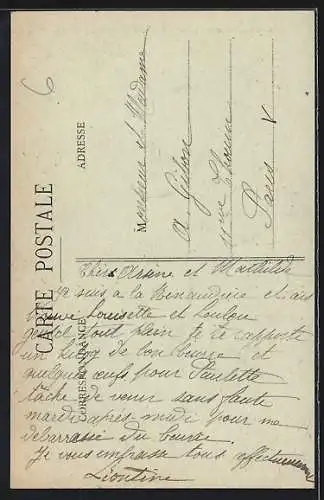 CARTE POSTALE
CORRESPONDANCE
ADRESSE
Monsieur et Madame
A
11 rue Thouin
Paris V
6
Chers et Mathilde
Je suis a la Renaudière et ais
Louisette et Loulou
tout plein je te rapporte
un de bon beurre et
quelques œufs pour Paulette
tâche de venir sans faute
mardi après-midi pour me
débarrassé du beurre
Je vous embrasse tous affectueusement
Léontine